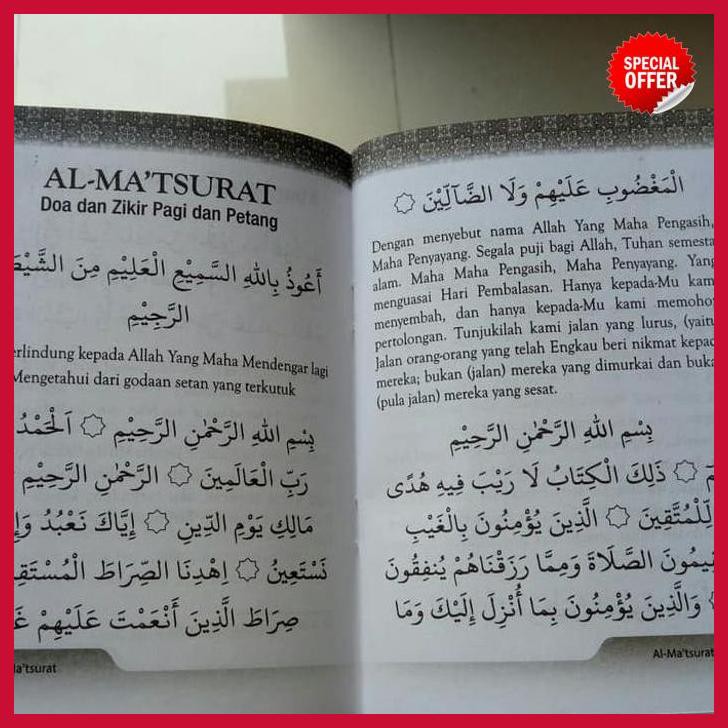 SPECIAL
OFFER
AL-MA'TSURAT
Doa dan Zikir Pagi dan Petang
أَعُوذُ بِاللهِ السَّمِيْعِ الْعَلِيْمِ مِنَ
الرَّجِيْمِ
kepada Allah Yang Maha Mendengar lagi
Mengetahui dari godaan setan yang terkutuk
بِسْمِ اللهِ الرَّحْمٰنِ الرَّحِيْمِ ۞ اَلْحَمْدُ
رَبِّ الْعَالَمِينَ ۞ الرَّحْمٰنِ الرَّحِيْمِ
مَالِكِ يَوْمِ الدِّينِ ۞ إِيَّاكَ نَعْبُدُ
نَسْتَعِينُ ۞ اِهْدِنَا الصِّرَاطَ
صِرَاطَ الَّذِينَ أَنْعَمْتَ عَلَيْهِمْ
الْمَغْضُوبِ عَلَيْهِمْ وَلَا الضَّآلِّيْنَ ۞
Dengan menyebut nama Allah Yang Maha Pengasih,
Maha Penyayang. Segala puji bagi Allah, Tuhan semesta
alam. Maha Maha Pengasih, Maha Penyayang. Yang
menguasai Hari Pembalasan. Hanya kepada-Mu kami
menyembah, dan hanya kepada-Mu kami memohon
pertolongan. Tunjukilah kami jalan yang lurus, (yaitu
Jalan orang-orang yang telah Engkau beri nikmat
mereka; bukan (jalan) mereka yang dimurkai dan
(pula jalan) mereka yang sesat.
بِسْمِ اللهِ الرَّحْمٰنِ الرَّحِيْمِ
۞ ذَلِكَ الْكِتَابُ لَا رَيْبَ فِيهِ هُدًى
لِّلْمُتَّقِينَ ۞ الَّذِينَ يُؤْمِنُونَ بِالْغَيْبِ
الصَّلَاةَ وَمِمَّا رَزَقْنَاهُمْ يُنفِقُونَ
وَالَّذِينَ يُؤْمِنُونَ بِمَا أُنْزِلَ إِلَيْكَ وَمَا
Al-Ma'tsurat